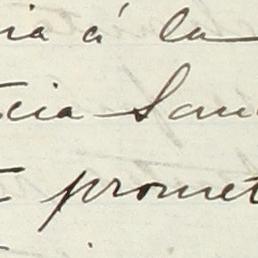 ia á la
cia San
promet